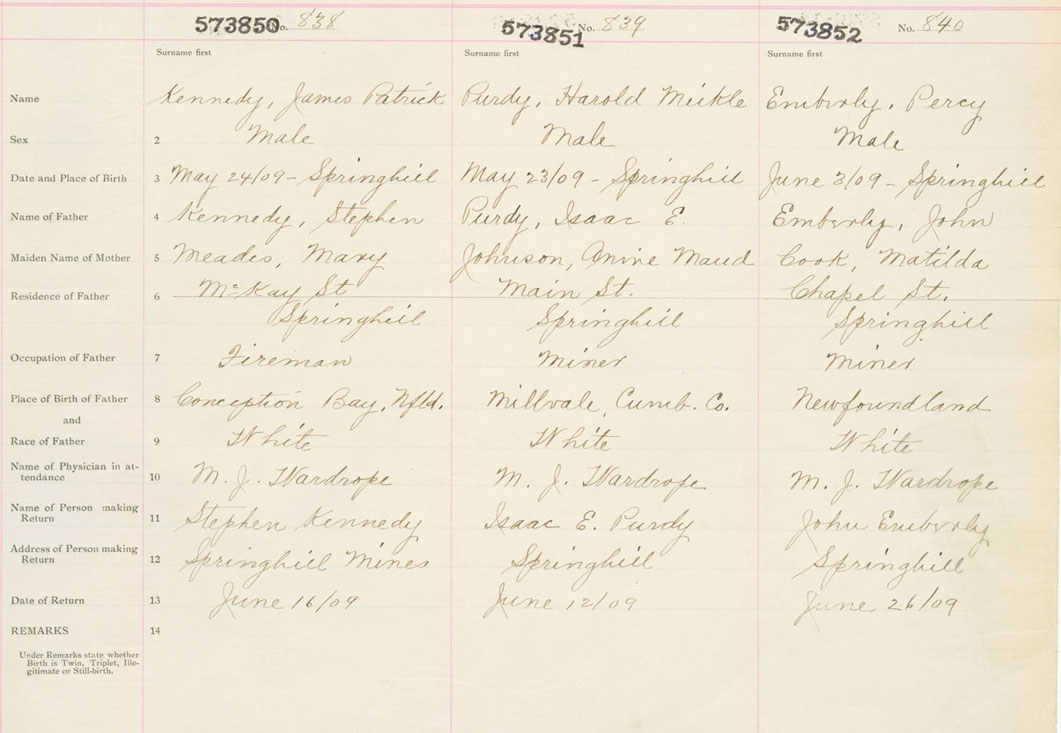 573850 No. 838 573851 No. 839 573852 No. 840
Surname first Surname first Surname first
Name Kennedy, James Patrick Purdy, Harold Meikle Emberly, Percy
Sex 2 Male Male Male
Date and Place of Birth 3 May 24/09 - Springhill May 23/09 - Springhill June 3/09 - Springhill
Name of Father 4 Kennedy, Stephen Purdy, Isaac E. Emberly, John
Maiden Name of Mother 5 Meades, Mary Johnson, Annie Maud Cook, Matilda
Residence of Father 6 McKay St Main St. Chapel St.
Springhill Springhill Springhill
Occupation of Father 7 Fireman Miner Miner
Place of Birth of Father 8 Conception Bay, Nfld. Millvale, Cumb. Co. Newfoundland
and
Race of Father 9 White White White
Name of Physician in at-
tendance 10 M. J. Wardrope M. J. Wardrope M. J. Wardrope
Name of Person making
Return 11 Stephen Kennedy Isaac E. Purdy John Emberly
Address of Person making
Return 12 Springhill Mines Springhill Springhill
Date of Return 13 June 16/09 June 12/09 June 26/09
REMARKS 14
Under Remarks state whether
Birth is Twin, Triplet, Ille-
gitimate or Still-birth.